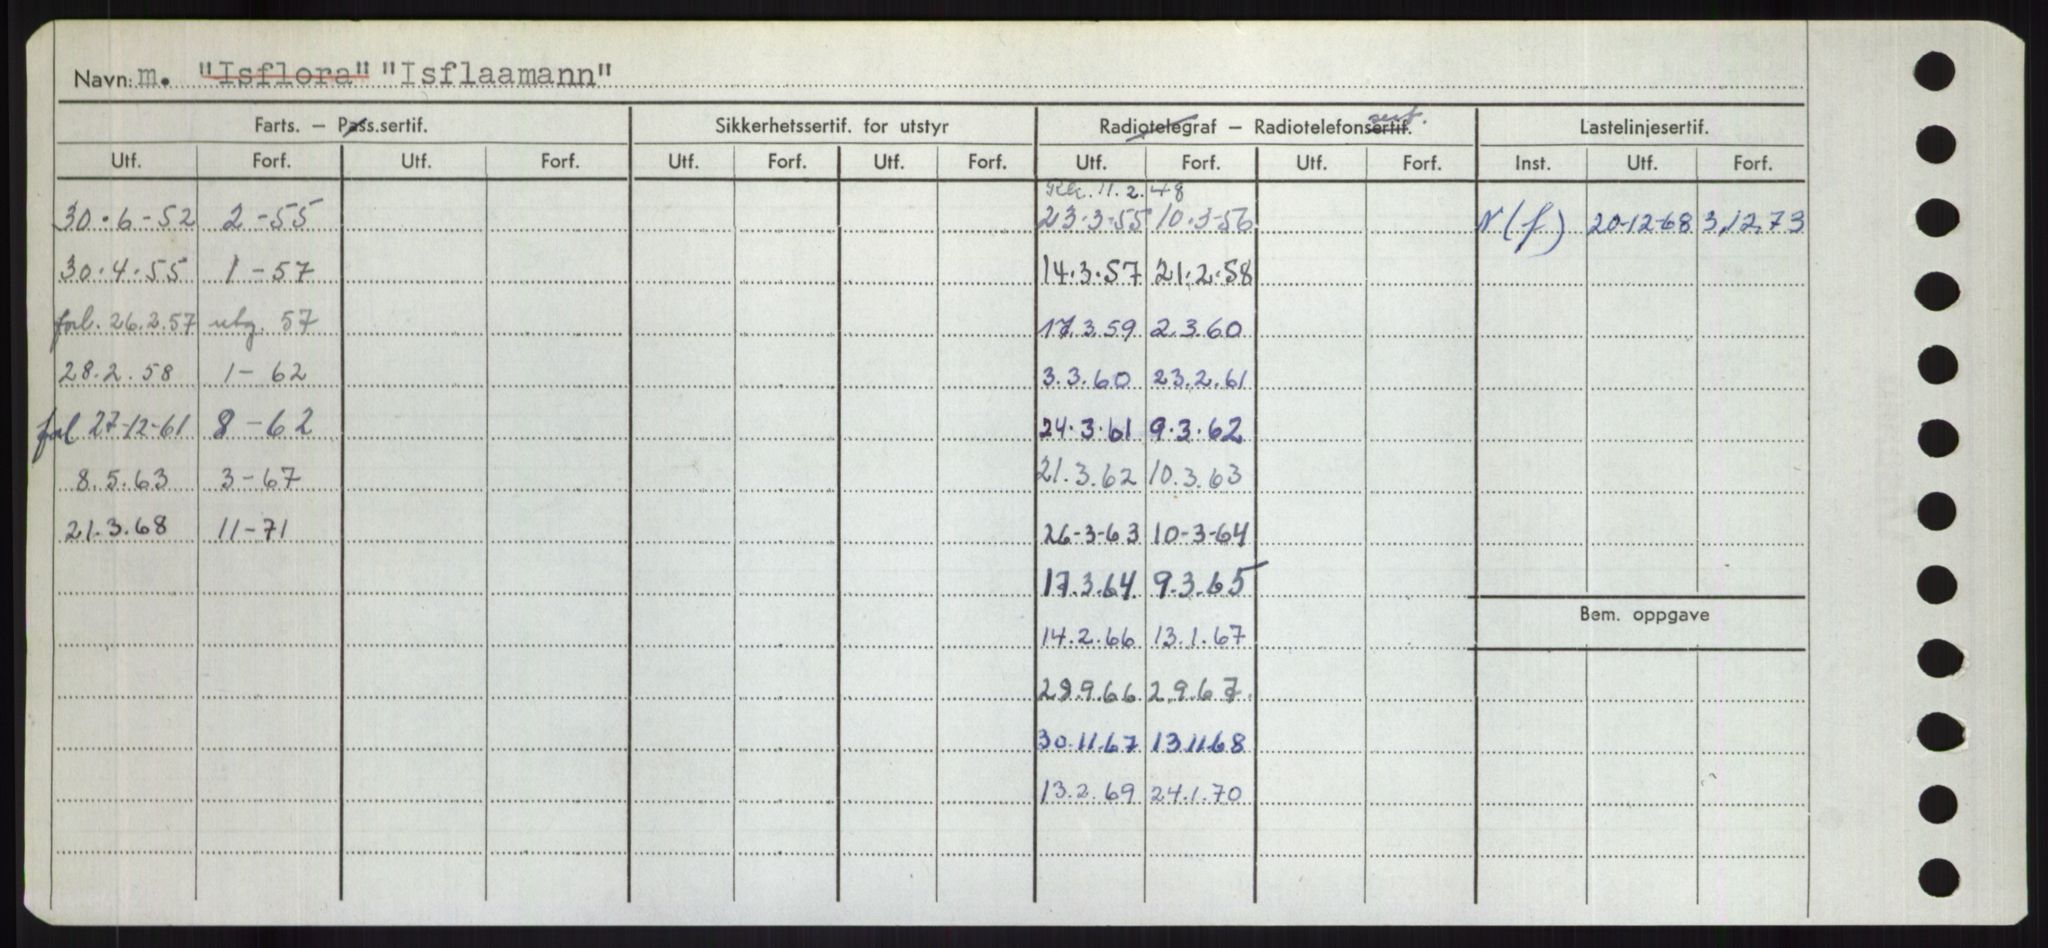 Navn: m. "Isflora" "Isflaamann"
Farts. — Pass.sertif. Sikkerhetssertif. for utstyr Radiotelegraf — Radiotelefonsertif. sert. Lastelinjesertif.
Utf. Forf. Utf. Forf. Utf. Forf. Utf. Forf. Utf. Forf. Utf. Forf. Inst. Utf. Forf.
11.2.48
30.6-52 2-55 23.3-55 10.3-56 N(f) 20-12-68 3.12.73
30.4.55 1-57 14.3.57 21.2.58
forl. 26.2.57 utg. 57 17.3.59 2.3.60
28.2.58 1-62 3.3.60 23.2.61
forl 27-12-61 8-62 24.3.61 9.3.62
8.5.63 3-67 21.3.62 10.3.63
21.3.68 11-71 26-3-63 10-3-64
17.3.64 9.3.65
Bem. oppgave
14.2.66 13.1.67
29.9.66 2.9.67.
30.11.67 13.11.68
13.2.69 24.1.70